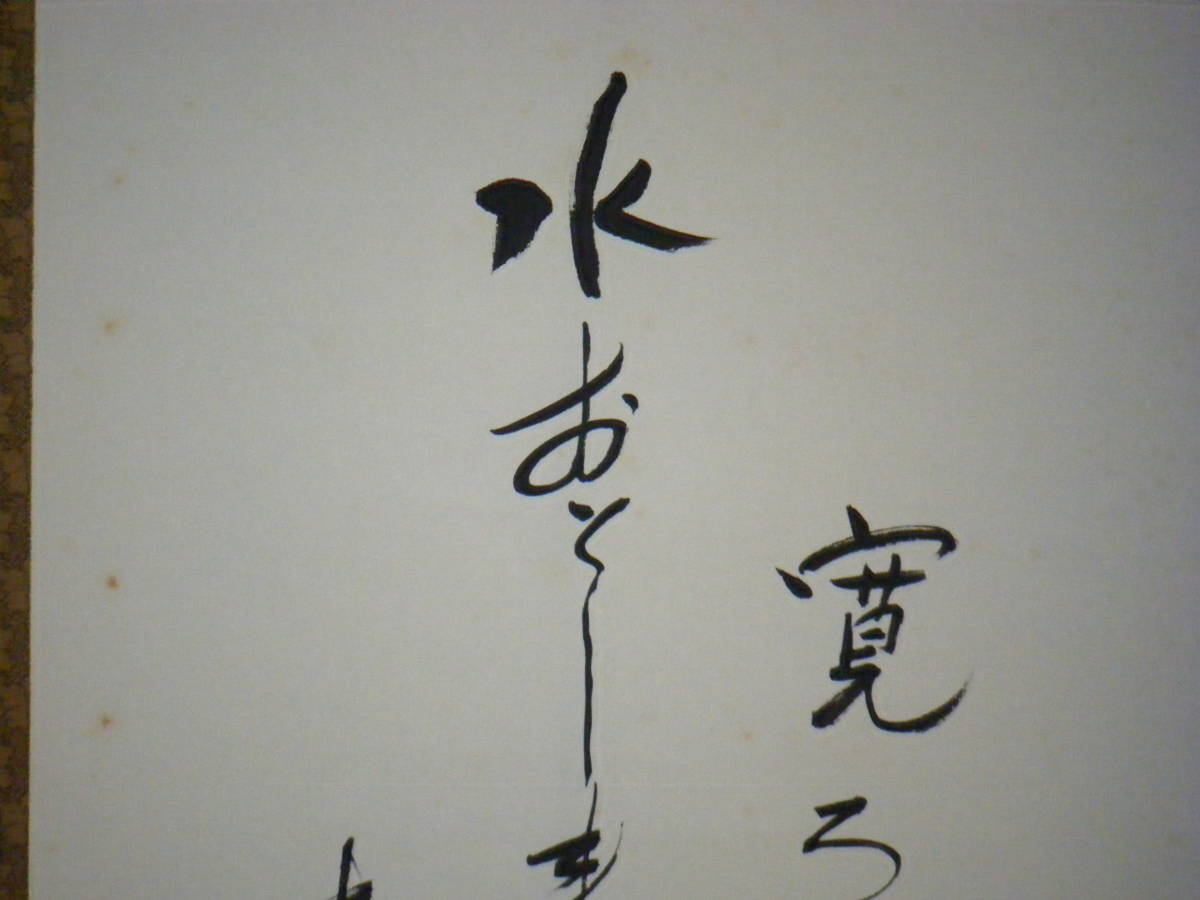 寛ろ
水おそし